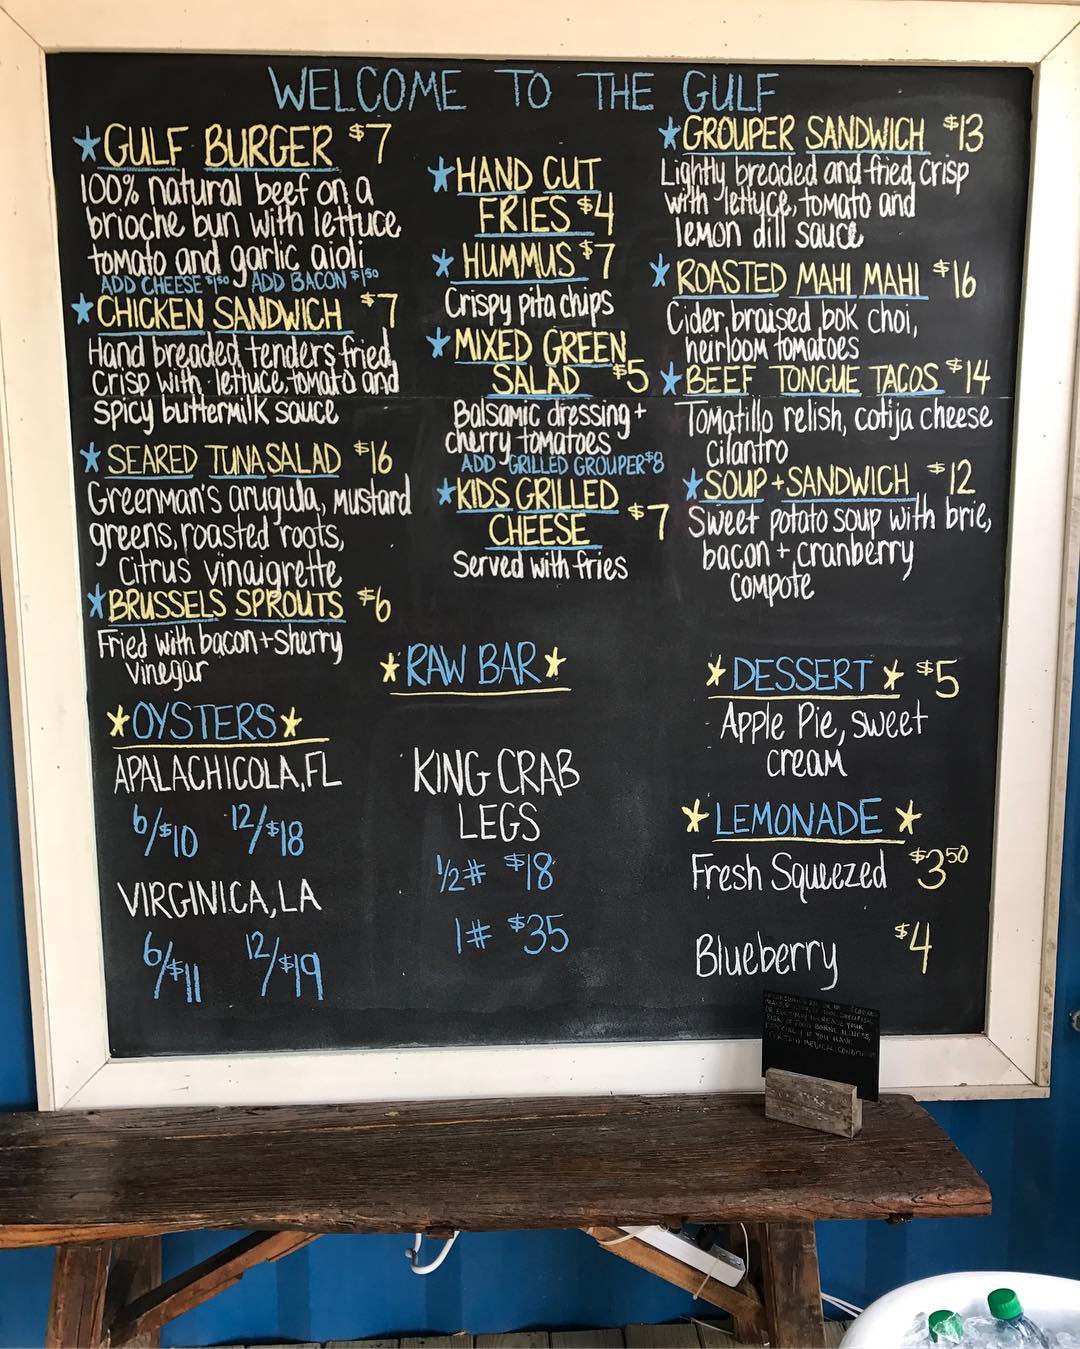 WELCOME TO THE GULF
GULF BURGER $7
100% natural beef on a
brioche bun with lettuce
tomato and garlic aioli
ADD CHEESE $1.50 ADD BACON $1.50
CHICKEN SANDWICH $7
Hand breaded tenders fried
crisp with lettuce, tomato and
spicy buttermilk sauce
SEARED TUNA SALAD $16
Greenman's arugula, mustard
greens, roasted roots,
citrus vinaigrette
BRUSSELS SPROUTS $6
Fried with bacon + sherry
vinegar
*OYSTERS*
APALACHICOLA, FL
6/$10 12/$18
VIRGINICA, LA
6/$11 12/$19
HAND CUT
FRIES $4
HUMMUS $7
Crispy pita chips
MIXED GREEN
SALAD $5
Balsamic dressing +
cherry tomatoes
ADD GRILLED GROUPER $8
KIDS GRILLED
CHEESE $7
Served with fries
*RAW BAR*
KING CRAB
LEGS
1/2# $18
1# $35
GROUPER SANDWICH $13
Lightly breaded and fried crisp
with lettuce, tomato and
lemon dill sauce
ROASTED MAHI MAHI $16
Cider braised bok choi,
heirloom tomatoes
BEEF TONGUE TACOS $14
Tomatillo relish, cotija cheese
cilantro
SOUP + SANDWICH $12
Sweet potato soup with brie,
bacon + cranberry
compote
*DESSERT* $5
Apple Pie, sweet
cream
*LEMONADE*
Fresh Squeezed $3.50
Blueberry $4
OR EGGS MAY INCREASE YOUR
RISK OF FOOD BORNE ILLNESS,
IF YOU HAVE
CERTAIN MEDICAL CONDITIONS